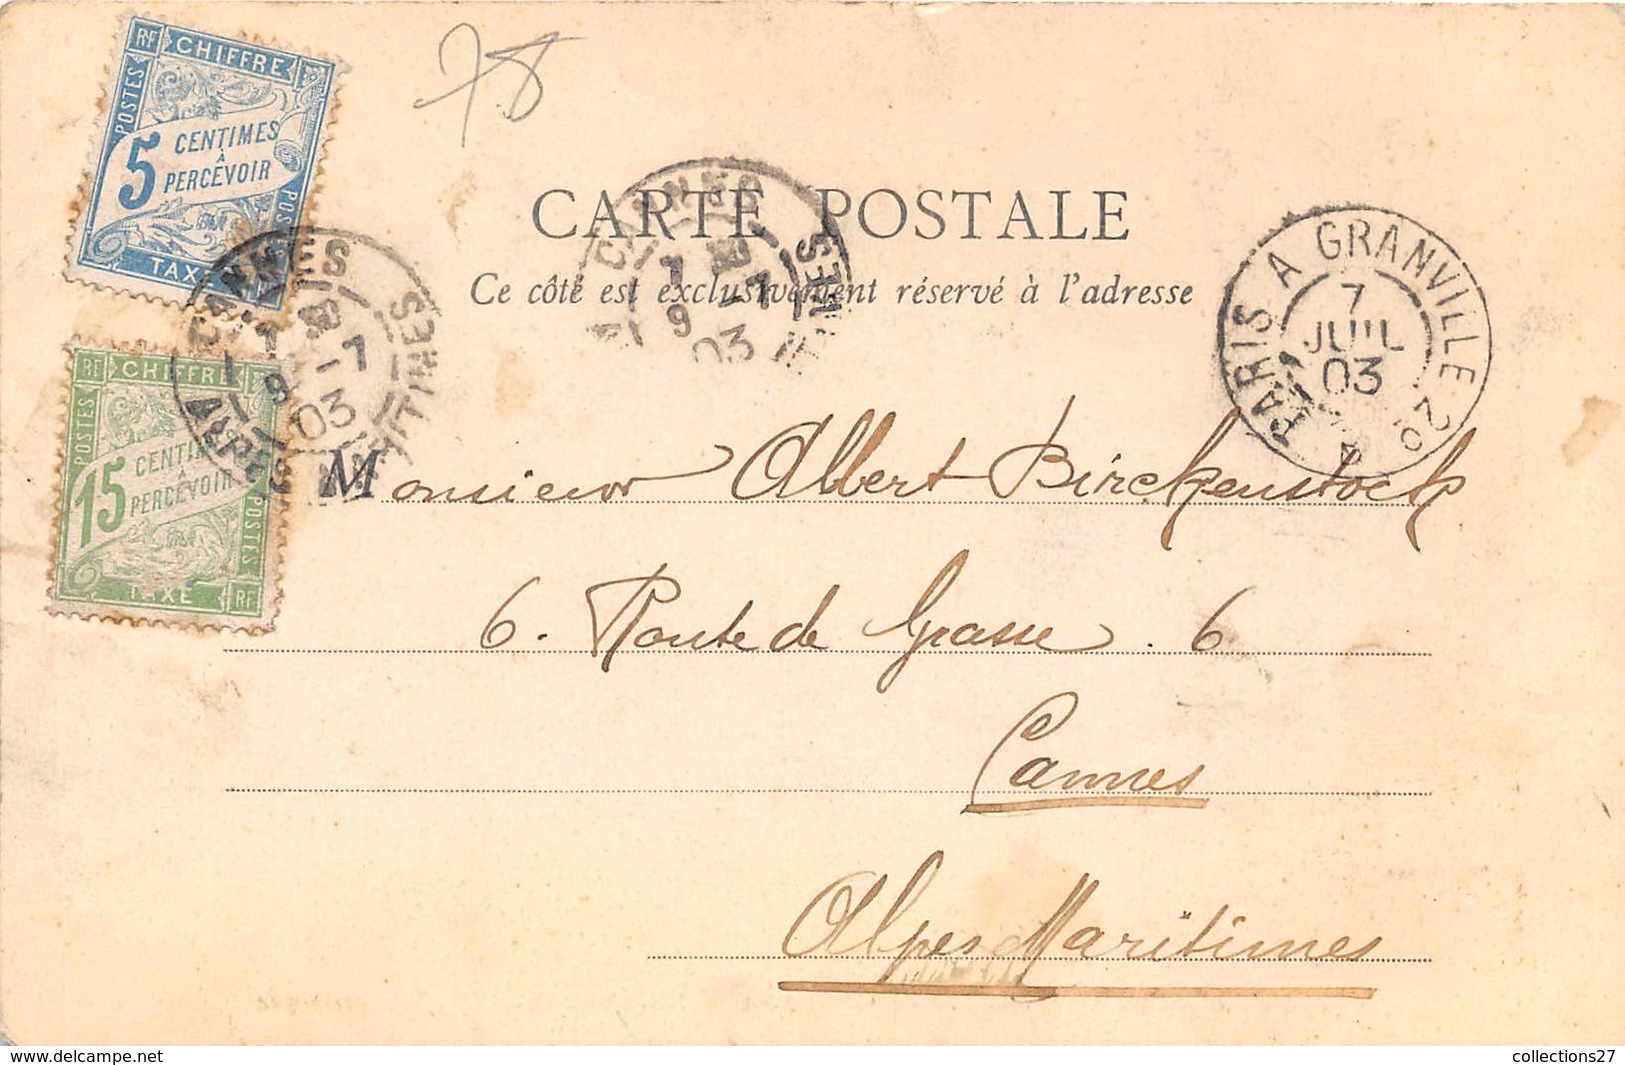 RF CHIFFRE
POSTES
5 CENTIMES
À
PERCEVOIR
POSTES
TAXE
78
CARTE POSTALE
Ce côté est exclusivement réservé à l'adresse
CANNES
7
9 - 7
03
ALPES MARITIMES
CANNES
7
9 - 7
03
MARITIMES
PARIS A GRANVILLE 2°
7
JUIL
03
RF CHIFFRE
POSTES
15 CENTIMES
À
PERCEVOIR
POSTES
TAXE RF
Monsieur Albert Birckenstock
6. Route de Grasse. 6
Cannes
Alpes Maritimes
www.delcampe.net
collections27